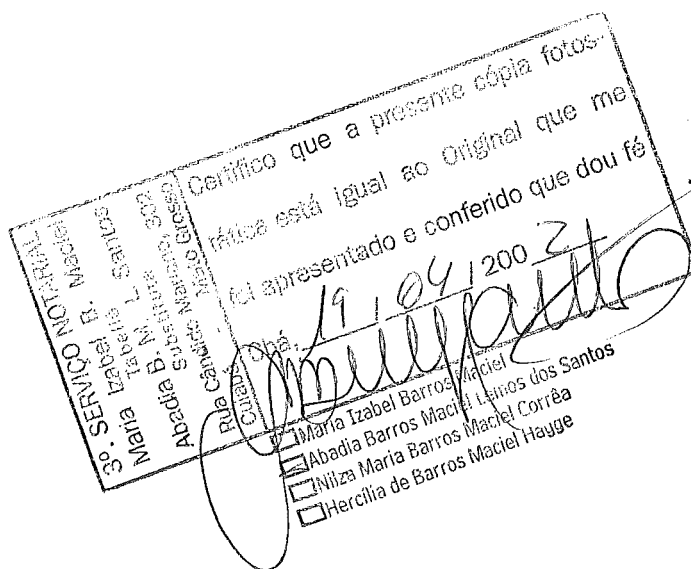 3º. SERVIÇO NOTARIAL
Maria Izabel B. Maciel
Tabeliã
Abadia B. M. L. Santos
Substituta
Rua Cândido Mariano, 302
Cuiabá Mato Grosso
Certifico que a presente cópia fotos-
tática está igual ao Original que me
foi apresentado e conferido que dou fé
Cbá, 19 / 04 / 200 2
Maria Izabel Barros Maciel
Abadia Barros Maciel Lemos dos Santos
Nilza Maria Barros Maciel Corrêa
Hercília de Barros Maciel Hayge